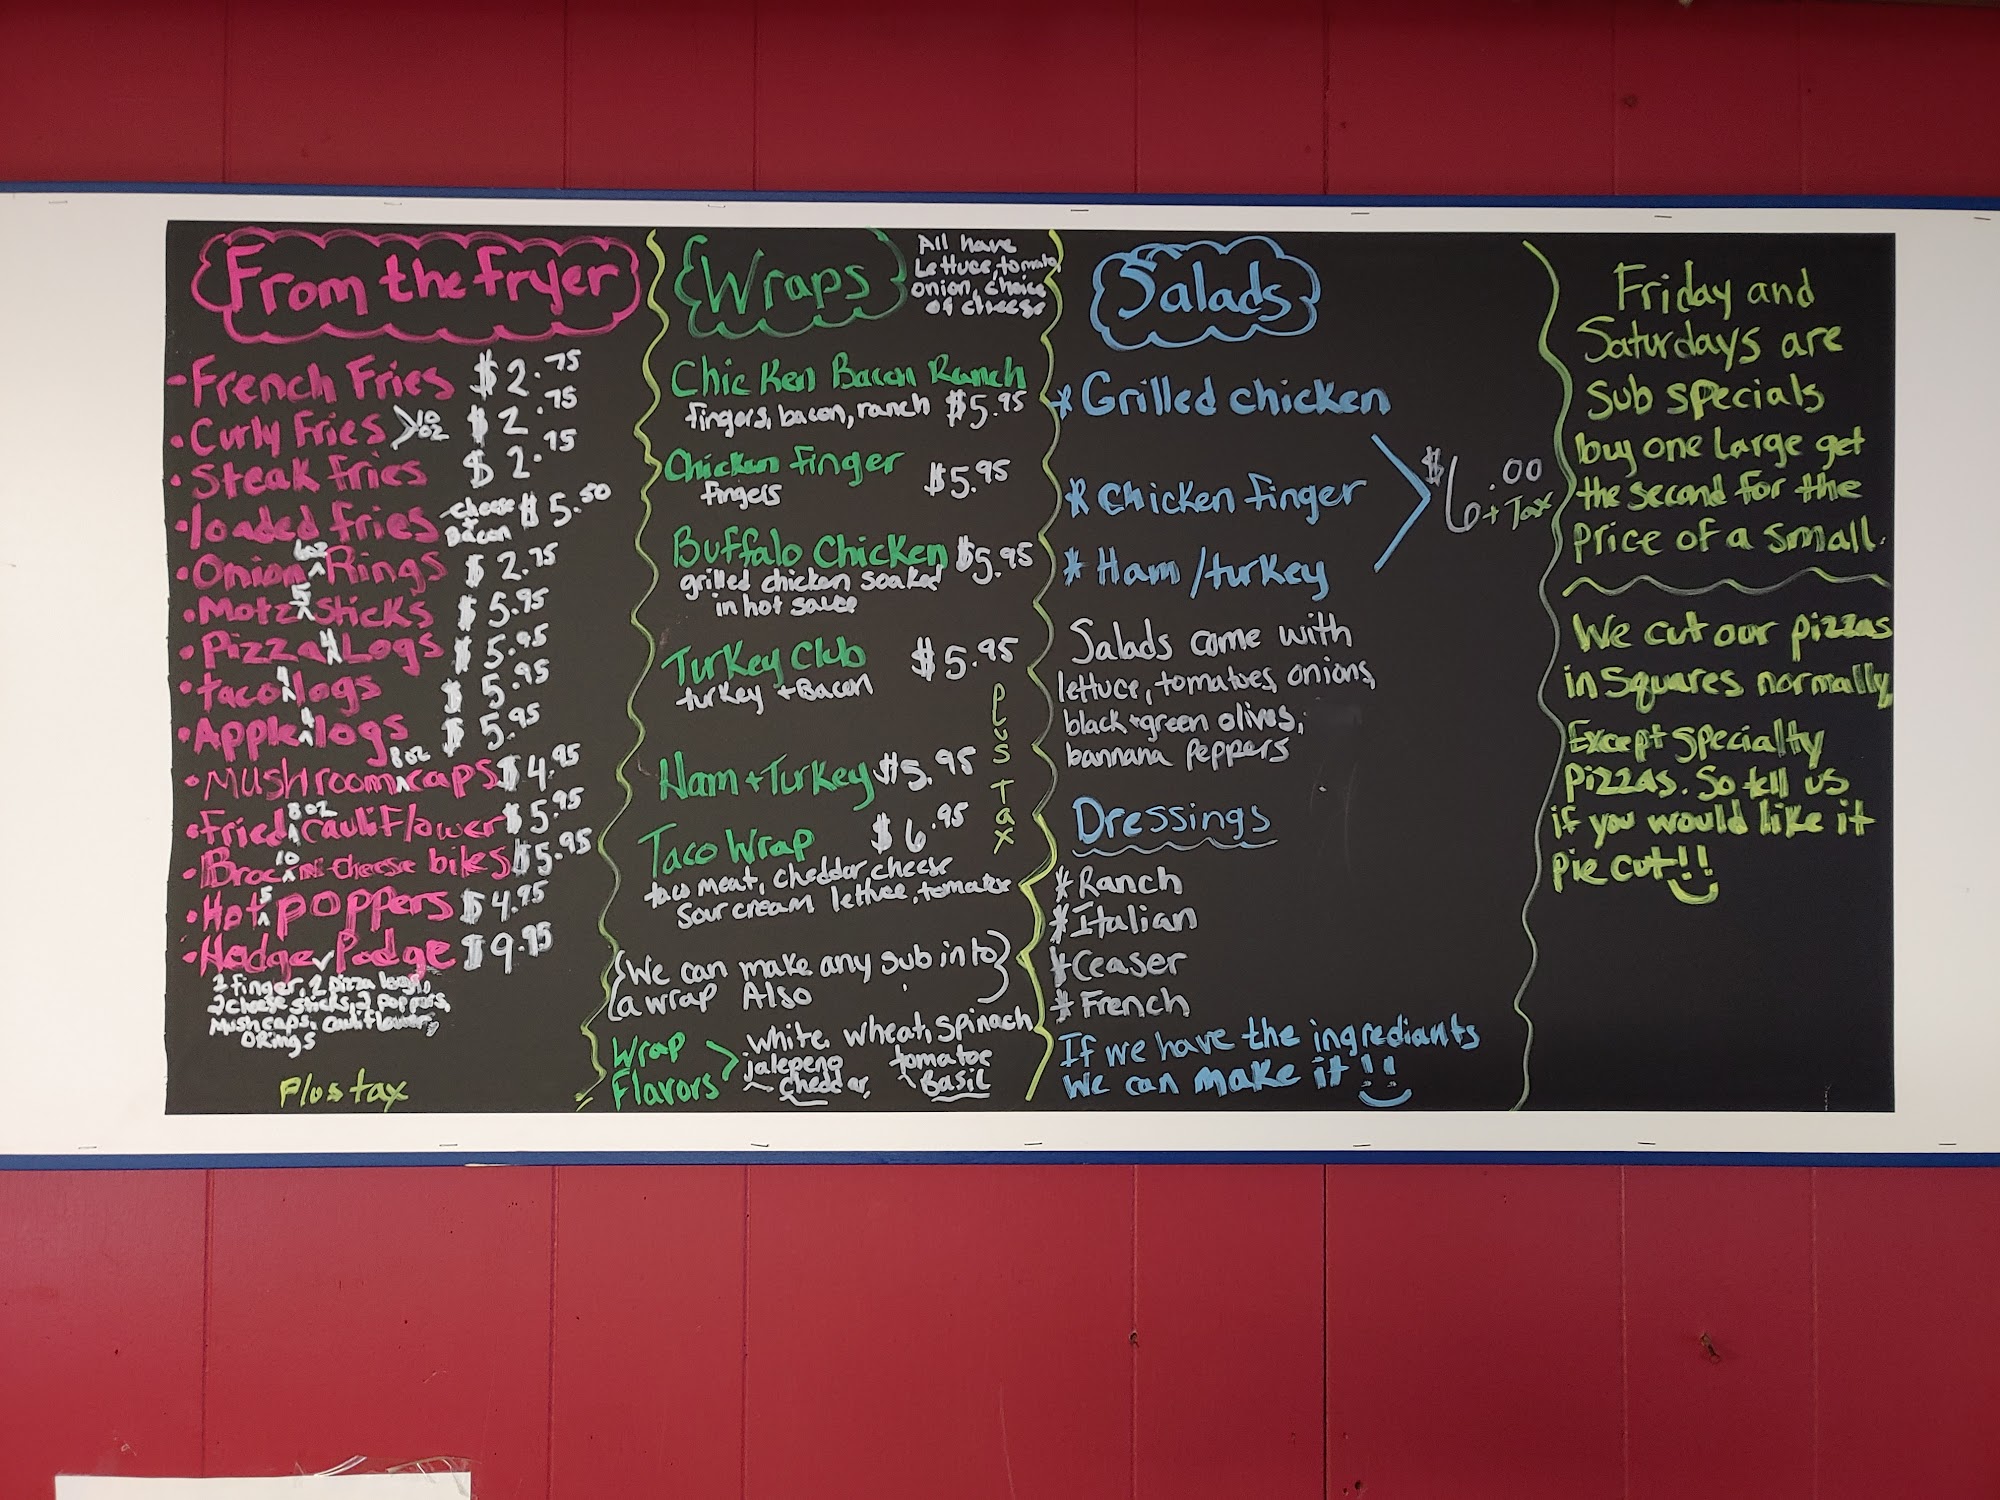 From the fryer
• French Fries $2.75
• Curly Fries >10 oz $2.75
• Steak fries $2.75
• loaded fries cheese + Bacon $5.50
• Onion 6oz Rings $2.75
• Motz 5 Sticks $5.95
• Pizza 4 Logs $5.95
• taco 4 logs $5.95
• Apple 4 logs $5.95
• Mushroom 8oz caps $4.95
• Fried 8oz Cauliflower $5.95
• Broc 10 n cheese bites $5.95
• Hot 5 poppers $4.95
• Hodge Podge $9.95
2 finger, 2 pizza logs,
2 cheese sticks, 2 poppers,
Mushcaps, cauliflower,
ORings
Plus tax
Wraps
All have
Lettuce, tomato
onion, choice
of cheese
Chicken Bacon Ranch
fingers, bacon, ranch $5.95
Chicken finger $5.95
fingers
Buffalo Chicken $5.95
grilled chicken soaked
in hot sauce
Turkey Club $5.95
turkey + Bacon
Ham + Turkey $5.95
Taco Wrap $6.95
taco meat, cheddar cheese
sour cream lettuce, tomatoe
Plus Tax
(We can make any sub into)
a wrap Also
Wrap
Flavors
white, wheat, spinach
jalepeno tomatoe
cheddar, Basil
Salads
* Grilled chicken
* Chicken finger
* Ham/turkey
$6.00
+ Tax
Salads come with
lettuce, tomatoes, onions,
black + green olives,
bannana peppers
Dressings
* Ranch
* Italian
* Ceaser
* French
If we have the ingrediants
We can make it!!
Friday and
Saturdays are
sub specials
buy one Large get
the second for the
price of a small.
We cut our pizzas
in Squares normally,
Except specialty
pizzas. So tell us
if you would like it
pie cut!!